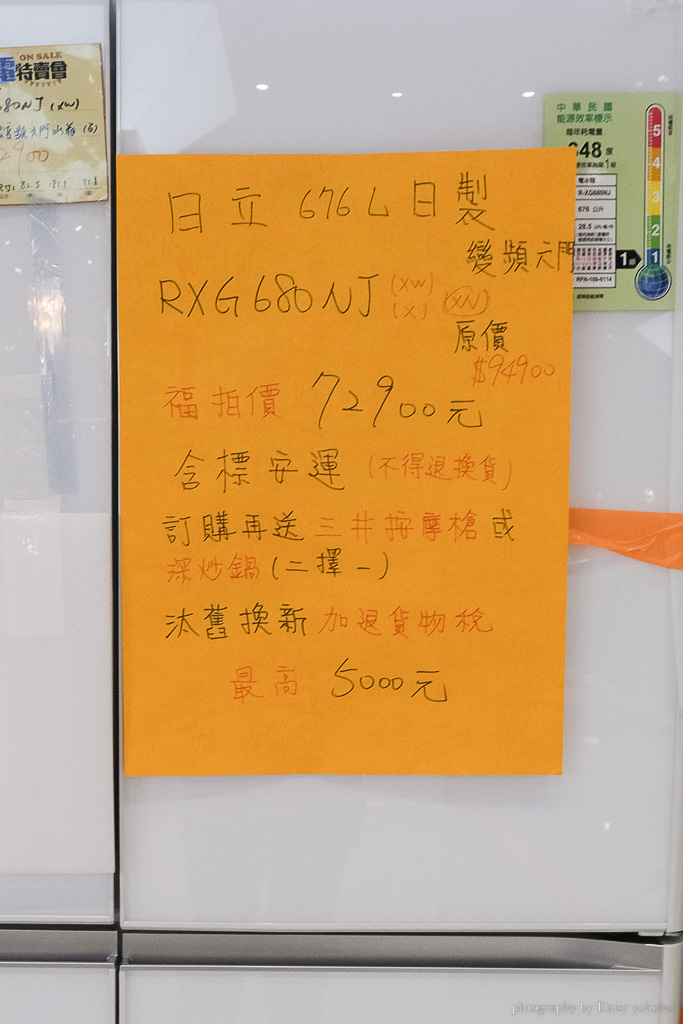 ON SALE
特賣會
680NJ (XW)
2900
中華民國
能源效率標示
每年耗電量
348 度
電冰箱
R-XG680NJ
676 公升
5
4
3
2
1
1級
日立 676L 日製
變頻六門
RXG680NJ (XW)
(X) (XN)
原價
$94900
福拍價 72900元
含標安運 (不得退換貨)
訂購再送三井按摩槍或
深炒鍋 (二擇一)
汰舊換新 加退貨物稅
最高 5000元